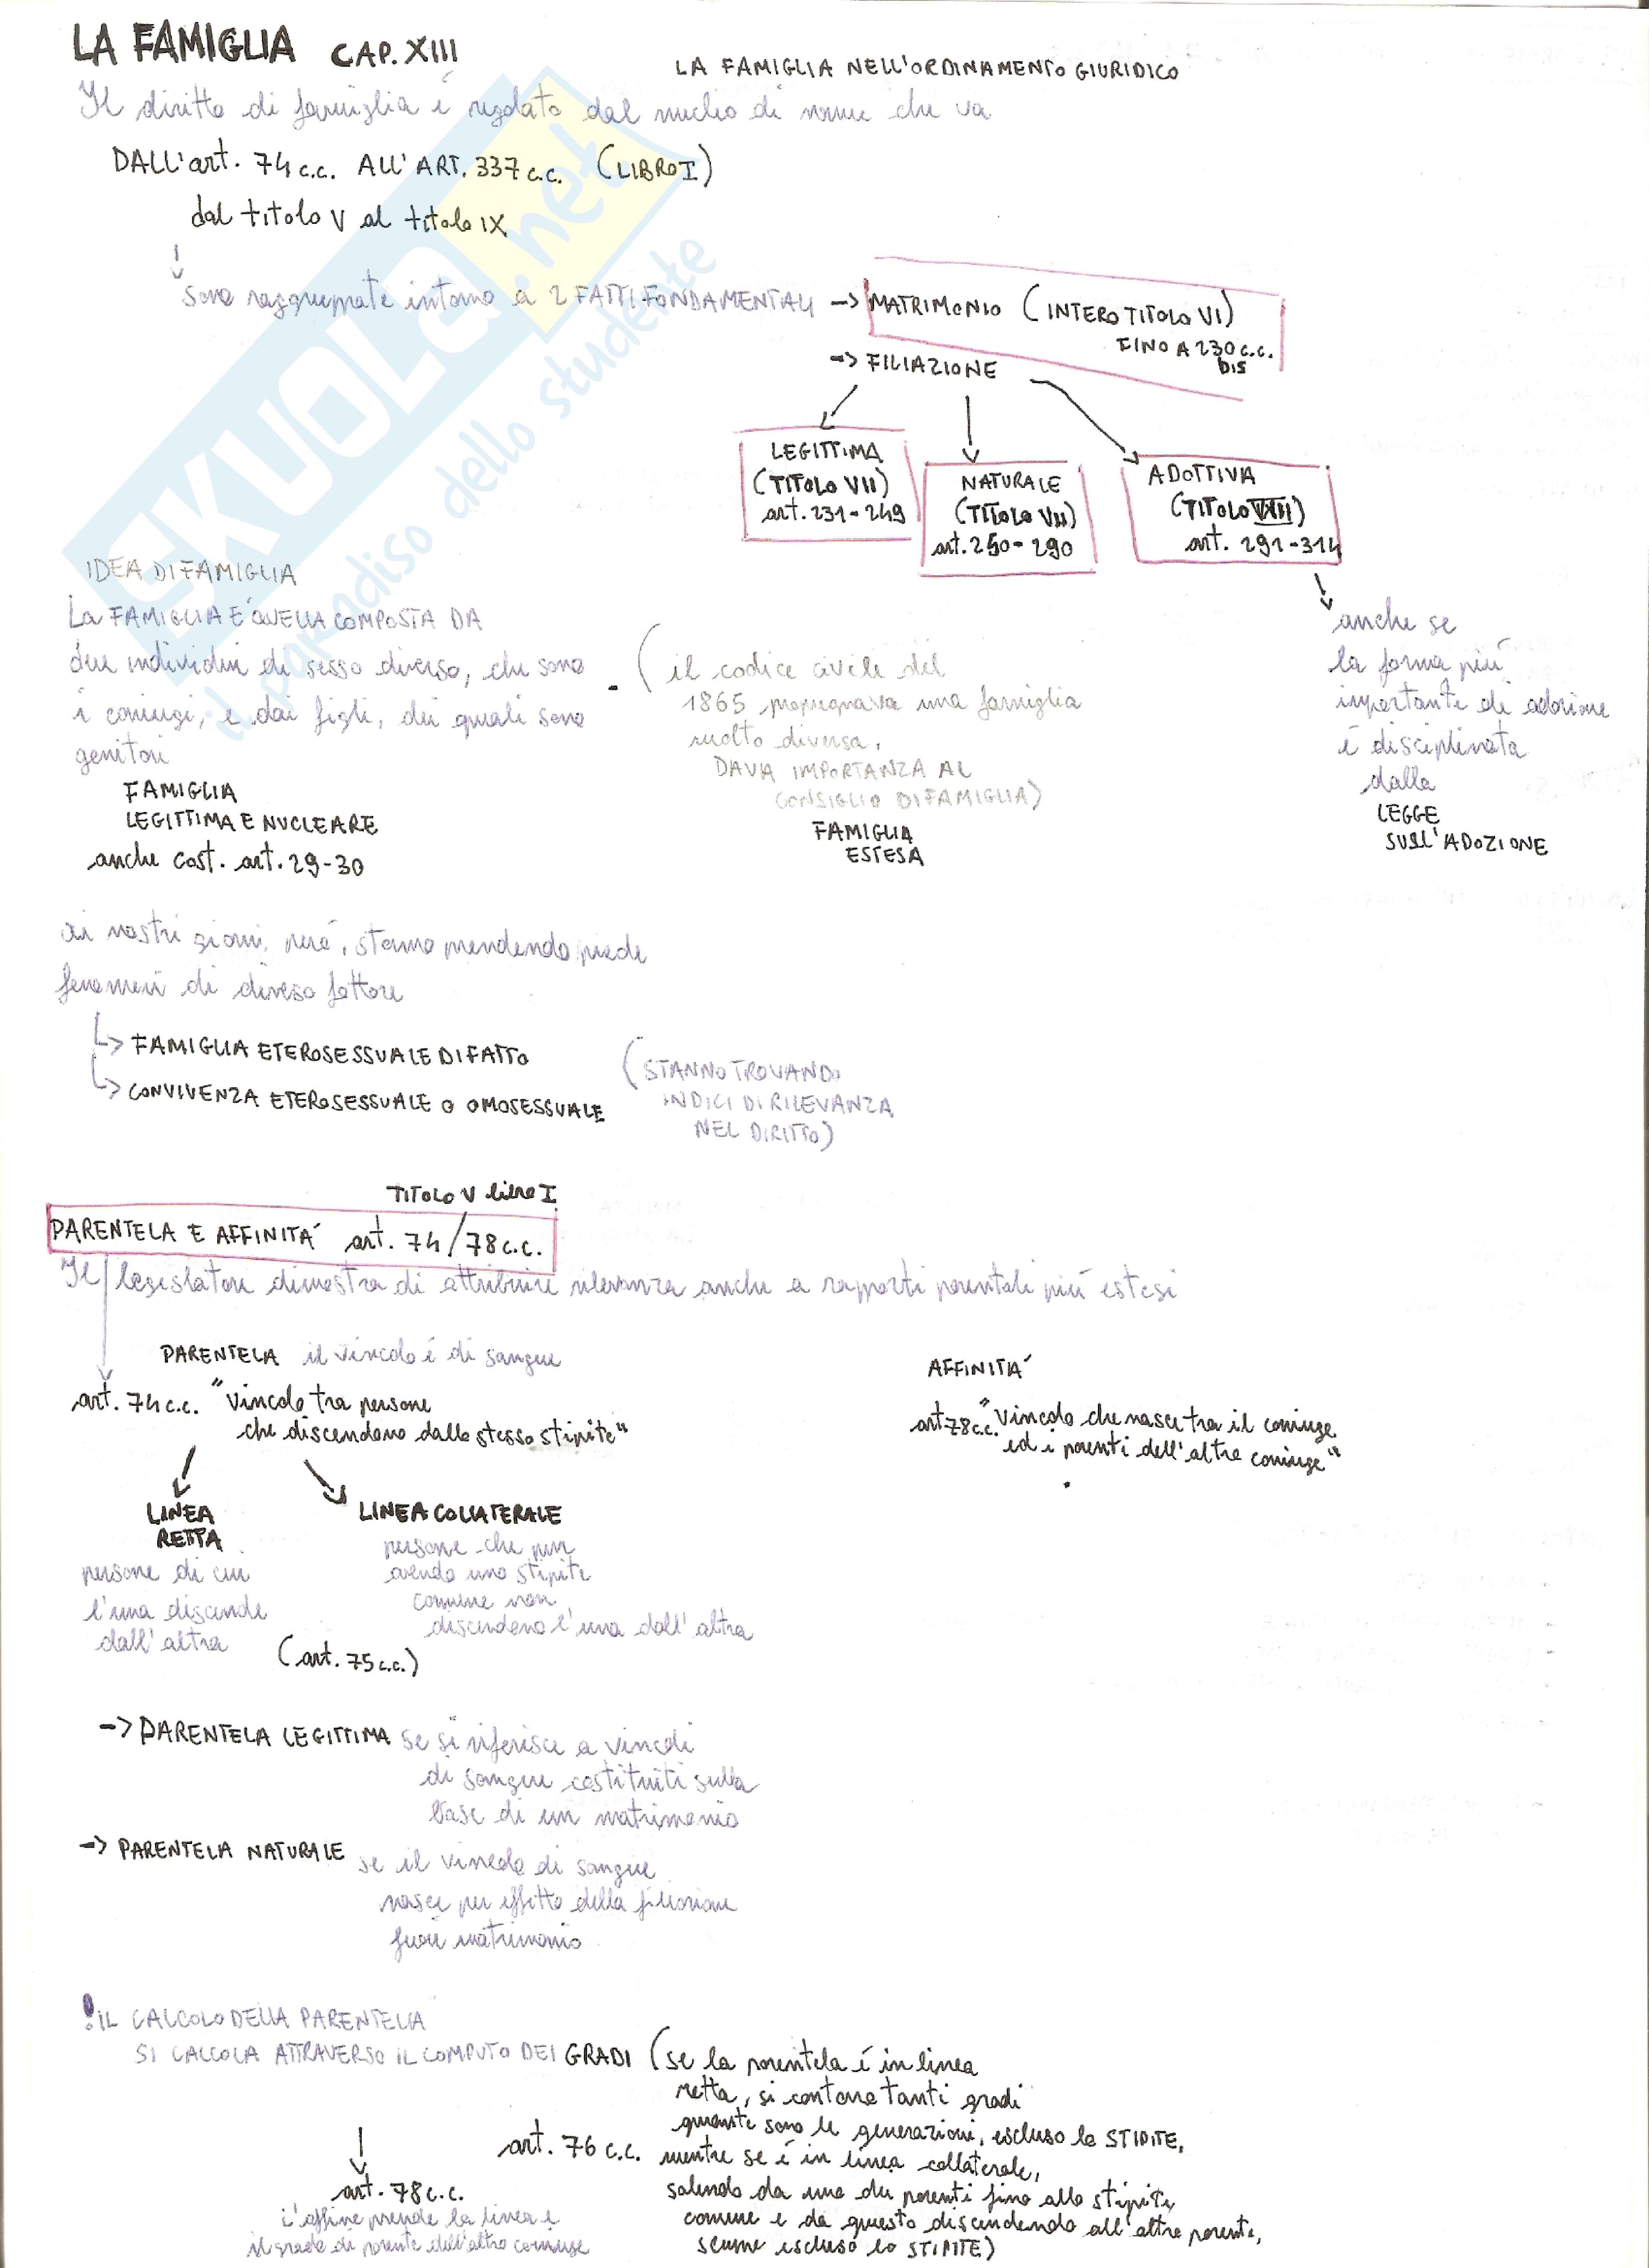 LA FAMIGLIA CAP. XIII
LA FAMIGLIA NELL'ORDINAMENTO GIURIDICO
Il diritto di famiglia è regolato dal nucleo di norme che va
DALL'art. 74 c.c. ALL'ART. 337 c.c. (LIBRO I)
dal titolo V al titolo IX
sono raggruppate intorno a 2 FATTI FONDAMENTALI -> MATRIMONIO (INTERO TITOLO VI)
FINO A 230 c.c.
BIS
-> FILIAZIONE
LEGITTIMA
(TITOLO VII)
art. 231-249
NATURALE
(TITOLO VII)
art. 250-290
ADOTTIVA
(TITOLO VIII)
art. 291-314
anche se
la forma più
importante di adozione
è disciplinata
dalla
LEGGE
SULL'ADOZIONE
IDEA DI FAMIGLIA
La FAMIGLIA E' QUELLA COMPOSTA DA
due individui di sesso diverso, che sono
i coniugi, e dai figli, dei quali sono
genitori
FAMIGLIA
LEGITTIMA E NUCLEARE
anche cost. art. 29-30
(il codice civile del
1865 propugnava una famiglia
molto diversa,
DAVA IMPORTANZA AL
CONSIGLIO DI FAMIGLIA)
FAMIGLIA
ESTESA
ai nostri giorni, però, stanno prendendo piede
fenomeni di diverso fattore
-> FAMIGLIA ETEROSESSUALE DI FATTO
-> CONVIVENZA ETEROSESSUALE O OMOSESSUALE
(STANNO TROVANDO
INDICI DI RILEVANZA
NEL DIRITTO)
TITOLO V libro I
PARENTELA E AFFINITA' art. 74/78 c.c.
Il legislatore dimostra di attribuire rilevanza anche a rapporti parentali più estesi
PARENTELA il vincolo è di sangue
art. 74 c.c. "vincolo tra persone
che discendono dallo stesso stipite"
AFFINITA'
art 78 c.c. "vincolo che nasce tra il coniuge
ed i parenti dell'altro coniuge"
LINEA
RETTA
persone di cui
l'una discende
dall'altra
LINEA COLLATERALE
persone che pur
avendo uno stipite
comune non
discendono l'una dall'altra
(art. 75 c.c.)
-> PARENTELA LEGITTIMA se si riferisce a vincoli
di sangue costituiti sulla
base di un matrimonio
-> PARENTELA NATURALE se il vincolo di sangue
nasce per effetto della filiazione
fuori matrimonio
! IL CALCOLO DELLA PARENTELA
SI CALCOLA ATTRAVERSO IL COMPUTO DEI GRADI (se la parentela è in linea
retta, si contano tanti gradi
quante sono le generazioni, escluso lo STIPITE,
art. 76 c.c. mentre se è in linea collaterale,
salendo da uno dei parenti fino allo stipite
comune e da questo discendendo all'altro parente,
sempre escluso lo STIPITE)
art. 78 c.c.
l'affine prende la linea e
il grado di parente dell'altro coniuge
SKUOLA.net
il paradiso dello studente